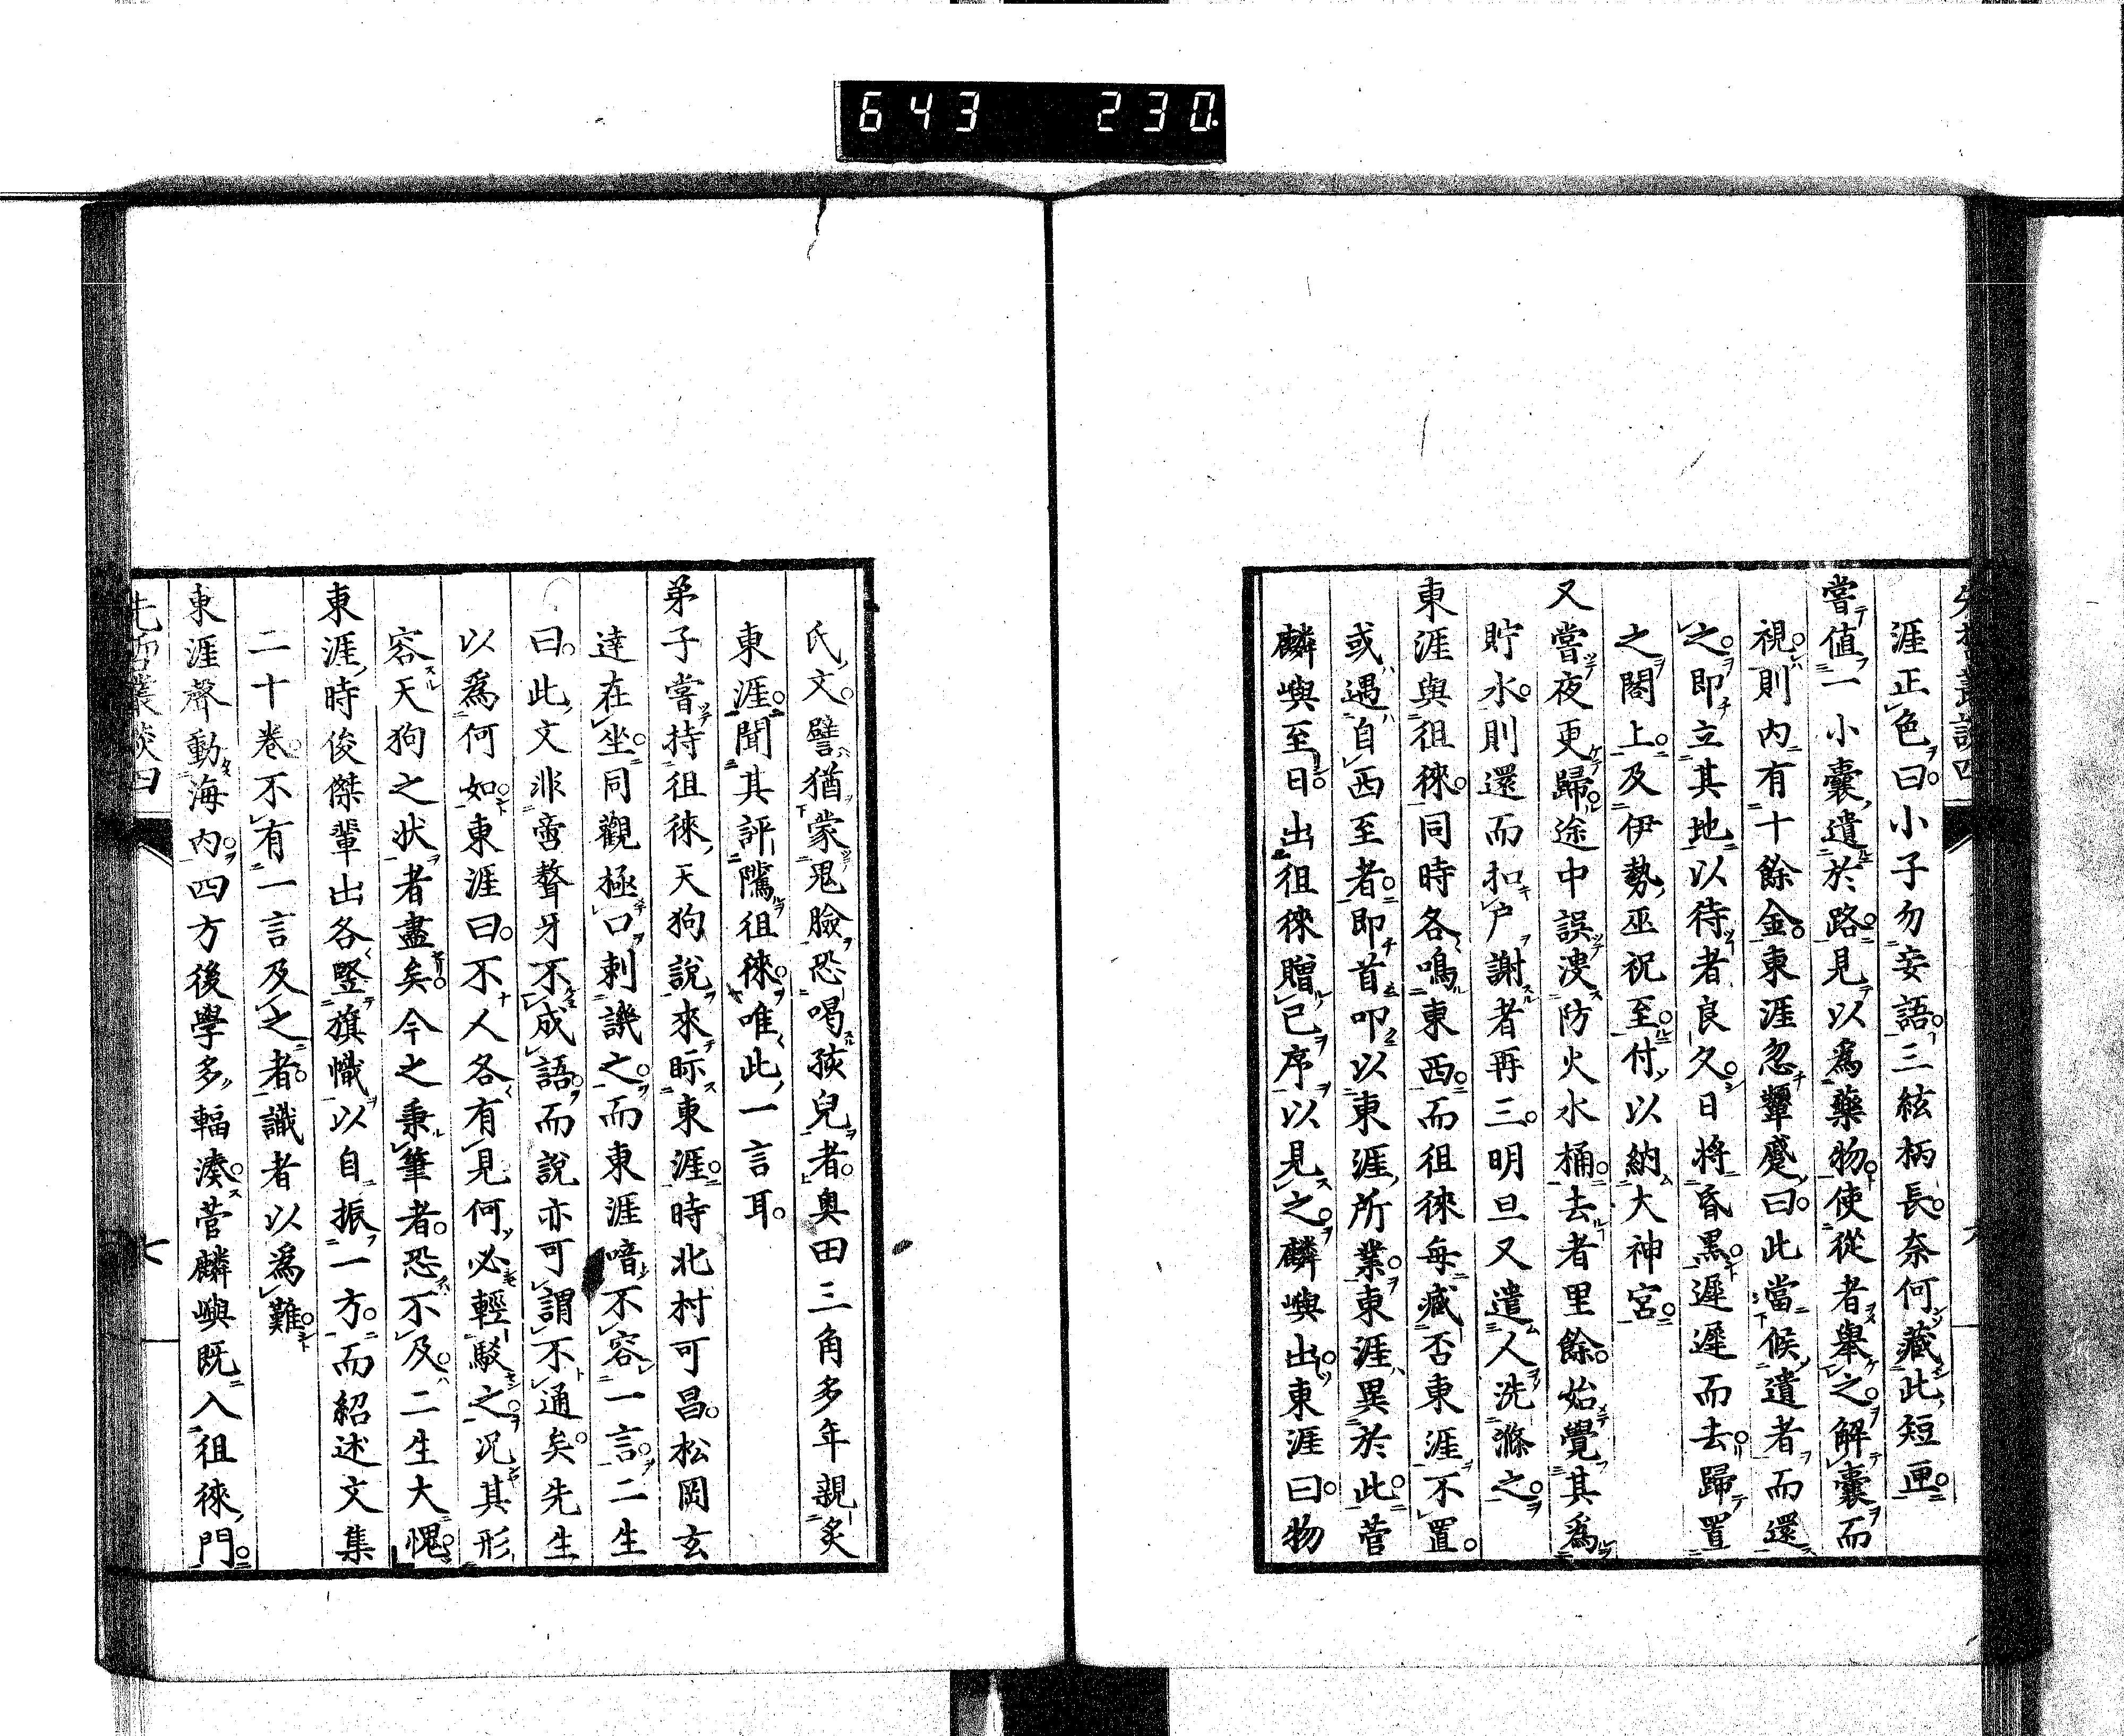 643 230
涯正色曰小子勿妄語三絃柄長奈何藏此短匣
嘗値一小囊遺於路見以爲藥物使從者舉之解囊而
視則内有十餘金東涯忽顰蹙曰此當候遺者而還
之即立其地以待者良久日將昏黑遲遲而去歸置
之閣上及伊勢巫祝至付以納大神宮
又嘗夜更歸途中誤溲防火水桶去者里餘始覺其爲
貯水則還而扣戶謝者再三明旦又遣人洗滌之
東涯與徂徠同時各鳴東西而徂徠每臧否東涯不置
或遇自西至者即首叩以東涯所業東涯異於此菅
麟嶼至日出徂徠贈己序以見之麟嶼出東涯曰物
氏文譬猶蒙鬼臉恐喝孩兒者奧田三角多年親炙
東涯聞其評隲徂徠唯此一言耳
弟子嘗持徂徠天狗說來眎東涯時北村可昌松岡玄
達在坐同觀極口刺譏之而東涯喑不容一言二生
曰此文非啻聱牙不成語而說亦可謂不通矣先生
以爲何如東涯曰不人各有見何必輕駁之况其形
容天狗之狀者盡矣今之秉筆者恐不及二生大愧
東涯時俊傑輩出各豎旗幟以自振一方而紹述文集
二十卷不有一言及之者識者以爲難
東涯聲動海内四方後學多輻湊菅麟嶼既入徂徠門
先哲叢談四
七